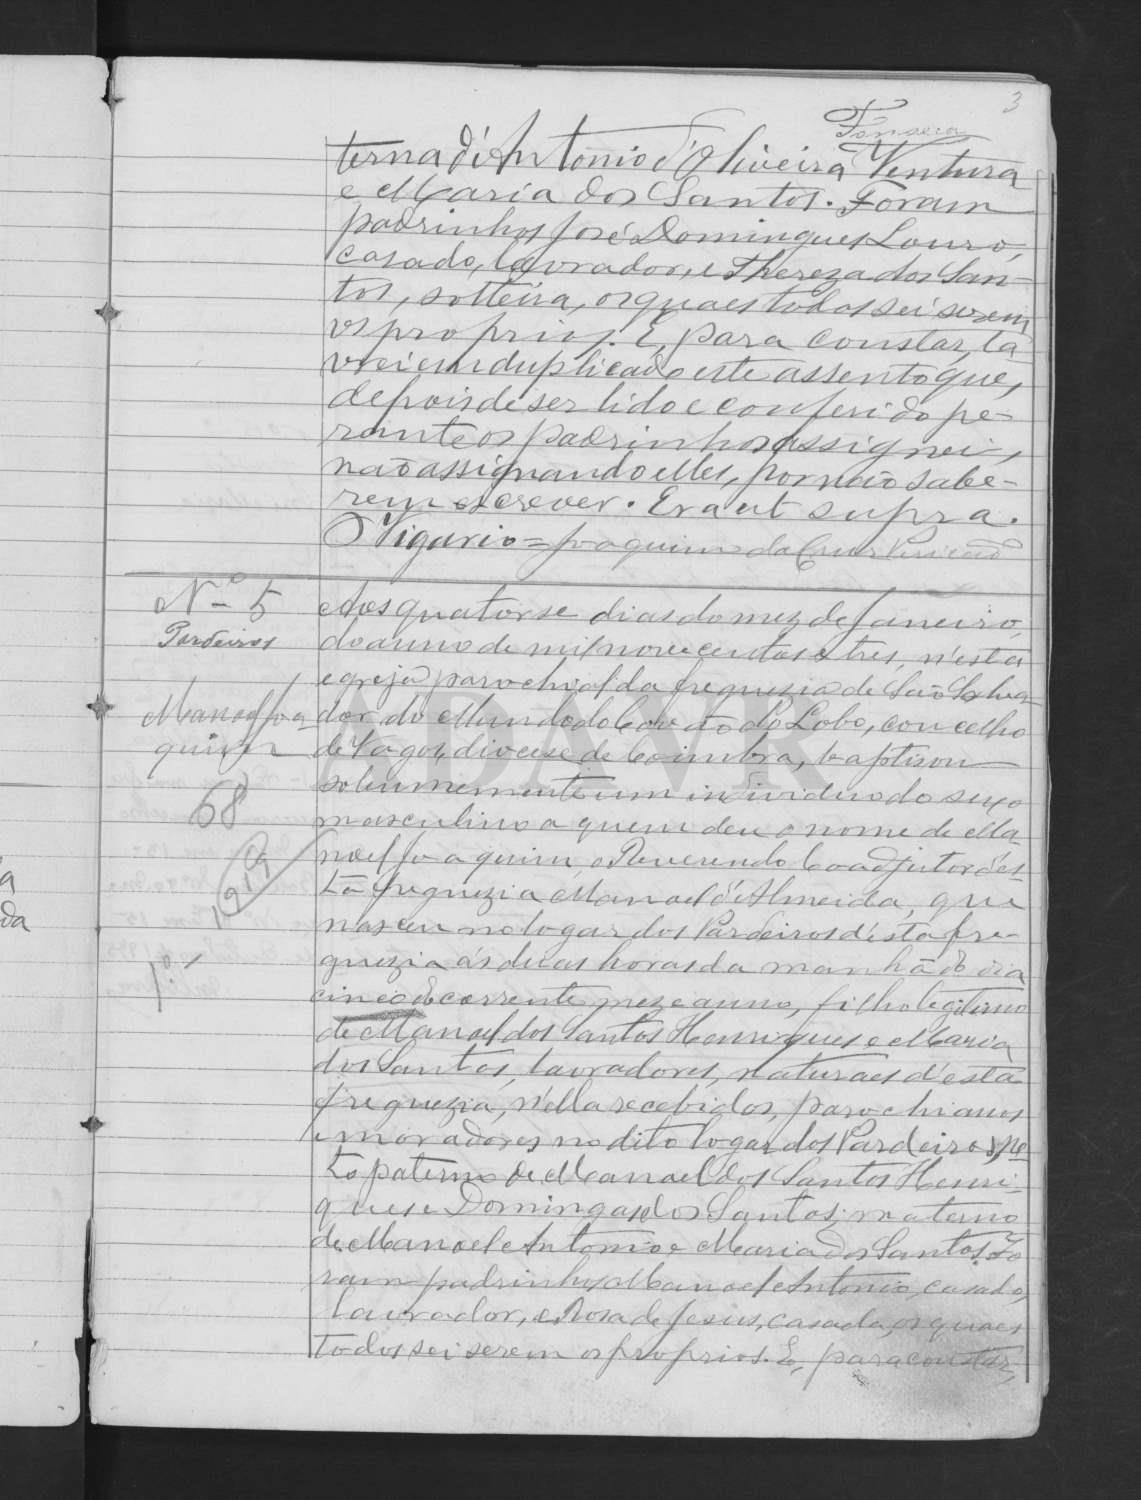 3
Fonseca
terna d'Antonio d'Oliveira Ventura
e Maria dos Santos. Foram
padrinhos José Domingues Louro,
casado, lavrador, e Thereza dos San-
tos, solteira, os quaes todos sei serem
os proprios. E, para constar, la
vrei em duplicado este assento que,
depois de ser lido e conferido pe-
rante os padrinhos assignei,
não assignando elles, por não sabe-
rem escrever. Era ut supra.
O Vigario = Joaquim da Cruz
Nº 5
Pardeiros
Manoel Joa
quim
68
1919
1º
Aos quatorse dias do mez de Janeiro,
do anno de mil novecentos e tres, n'esta
egreja parochial da freguezia de São Salva
dor do Mundo do Covão do Lobo, concelho
de Vagos, diocese de Coimbra, baptisou
solemnemente um individuo do sexo
masculino a quem deu o nome de Ma
noel Joaquim, o Reverendo Coadjutor d'es-
ta freguezia Manoel d'Almeida, que
nasceu no logar dos Pardeiros d'esta fre-
guezia ás duas horas da manhã do dia
cinco do corrente mez e anno, filho legitimo
de Manoel dos Santos Henriques e Maria
dos Santos, lavradores, naturaes d'esta
freguezia, n'ella recebidos, parochianos
e moradores no dito logar dos Pardeiros, ne-
to paterno de Manoel dos Santos Henri-
ques e Domingas dos Santos; materno
de Manoel Antonio e Maria dos Santos. Fo
ram padrinhos Manoel Antonio, casado,
lavrador, e Rosa de Jesus, casada, os quaes
todos sei serem os proprios. E, para constar,
a
da
ADAVR